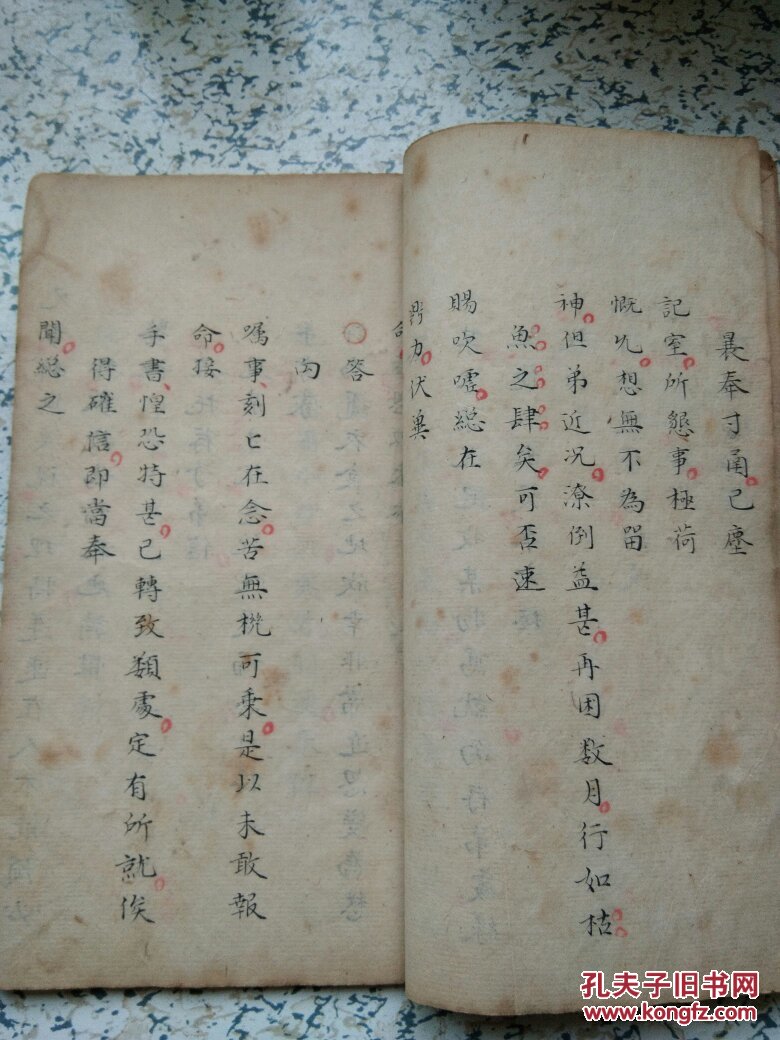 曩奉寸甬已塵
記室所懇事極荷
慨允想無不為留
神但弟近况潦倒益甚再困数月行如枯
魚之肆矣可否速
賜吹噓縂在
鼎力伏冀
答
向
嘱事刻匕在念苦無機可乗是以未敢報
命接
手書惶恐特甚已轉致𩔖處定有所就俟
得確信即當奉
聞縂之
孔夫子旧书网
www.kongfz.com